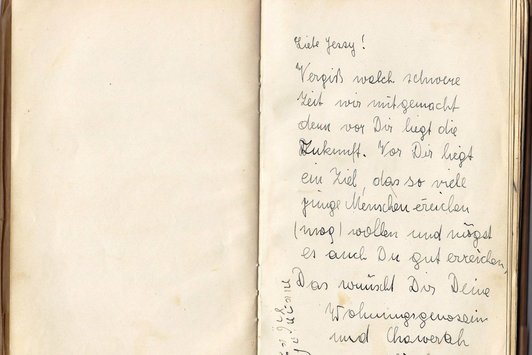 Liebe Jessy!
Vergiß welch schwere
Zeit wir mitgemacht
denn vor Dir liegt die
Zukunft. Vor Dir liegt
ein Ziel, das so viele
junge Menschen ereichen
(mog) wollen und mögst
es auch Du gut erreichen,
Das wünscht Dir Deine
Wohnungsgenossin
und Chawerah